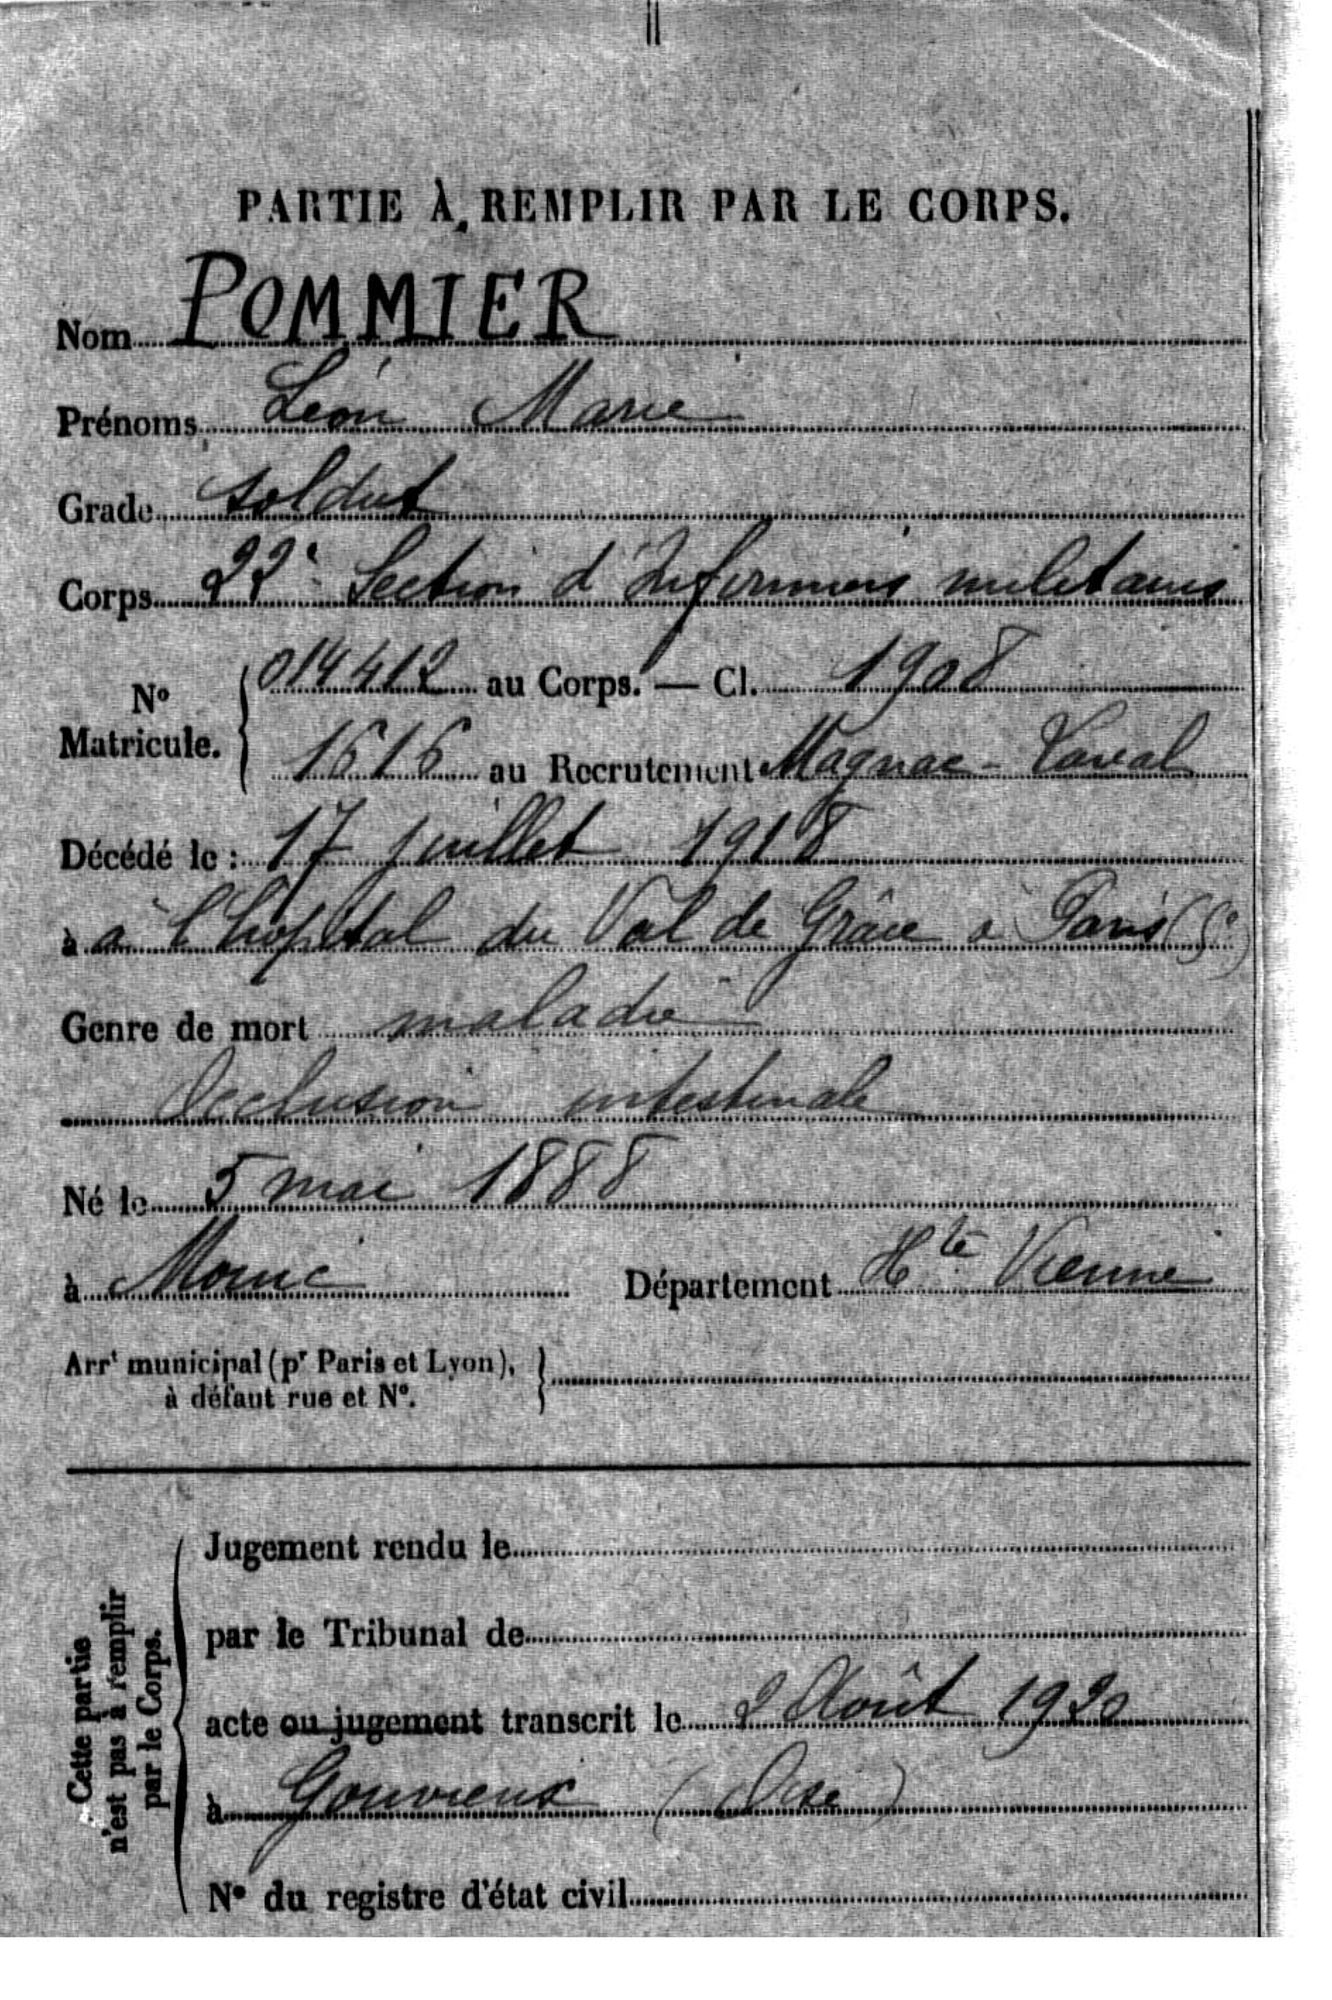 PARTIE À REMPLIR PAR LE CORPS.
Nom POMMIER
Prénoms Léon Marie
Grade soldat
Corps 22e Section d'Infirmiers militaires
No Matricule. 014412 au Corps. — Cl. 1908
1616 au Recrutement Magnac-Laval
Décédé le : 17 juillet 1918
à à l'hôpital du Val de Grâce à Paris (5e)
Genre de mort maladie
Occlusion intestinale
Né le 5 mai 1888
à Département Hte Vienne
Arrt municipal (pr Paris et Lyon),
à défaut rue et No.
Cette partie
n'est pas à remplir
par le Corps.
Jugement rendu le
par le Tribunal de
acte ou jugement transcrit le 2 Août 1920
à Gouvieux (Oise)
No du registre d'état civil